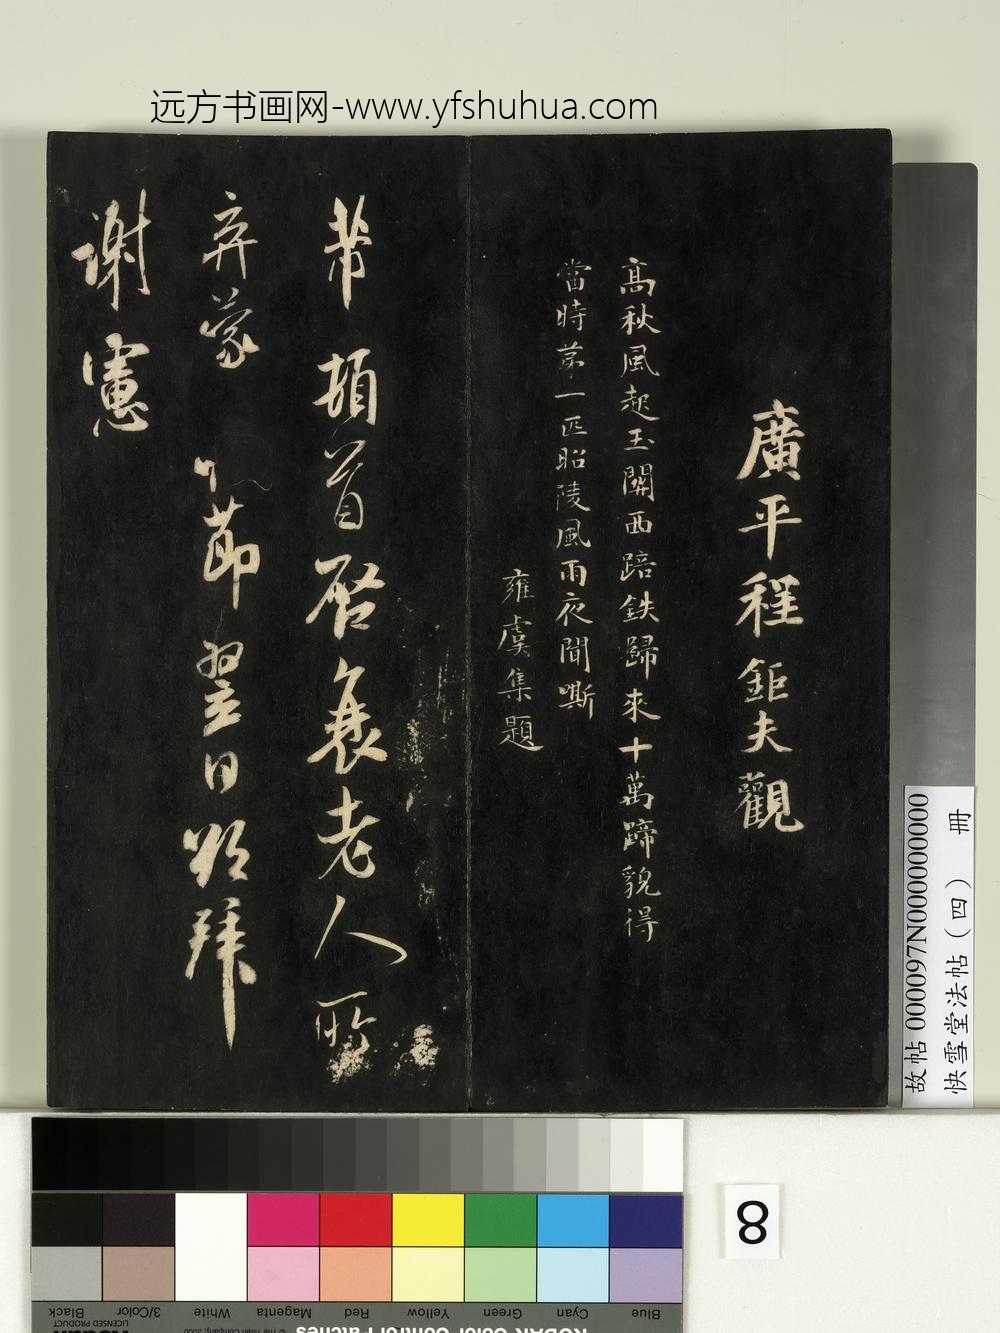 远方书画网-www.yfshuhua.com
廣平程鉅夫觀
高秋風起玉關西踣鉄歸來十萬蹄貌得
當時第一匹昭陵風雨夜聞嘶
雍虞集題
芾頓首啓衰老人所
弃蒙
節翌日明拜
謝憲
故帖 000097N000000000
快雪堂法帖（四） 册
8
Black
3/Color
White
Magenta
Red
Yellow
Green
Cyan
Blue
LICENSED PRODUCT
© The Tiffen Company, 2000
KODAK Color Control Patches
Kodak